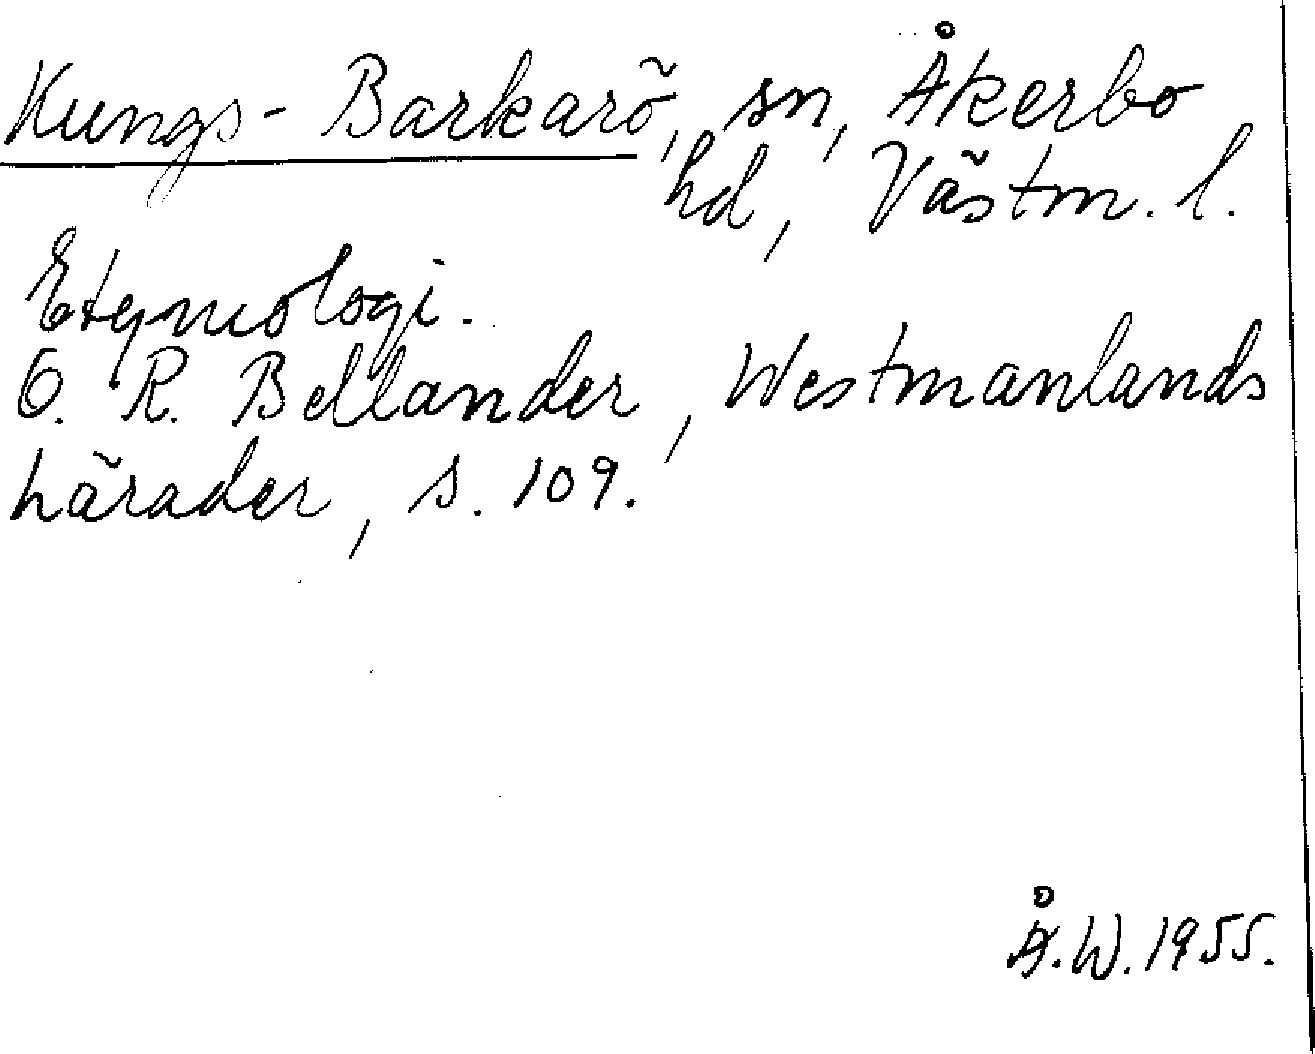 Kungs-Barkarö, sn, Åkerbo
hd, Västm. l.
Etymologi.
O. R. Bellander, Westmanlands
härader, s. 109.
Å.W. 1955.